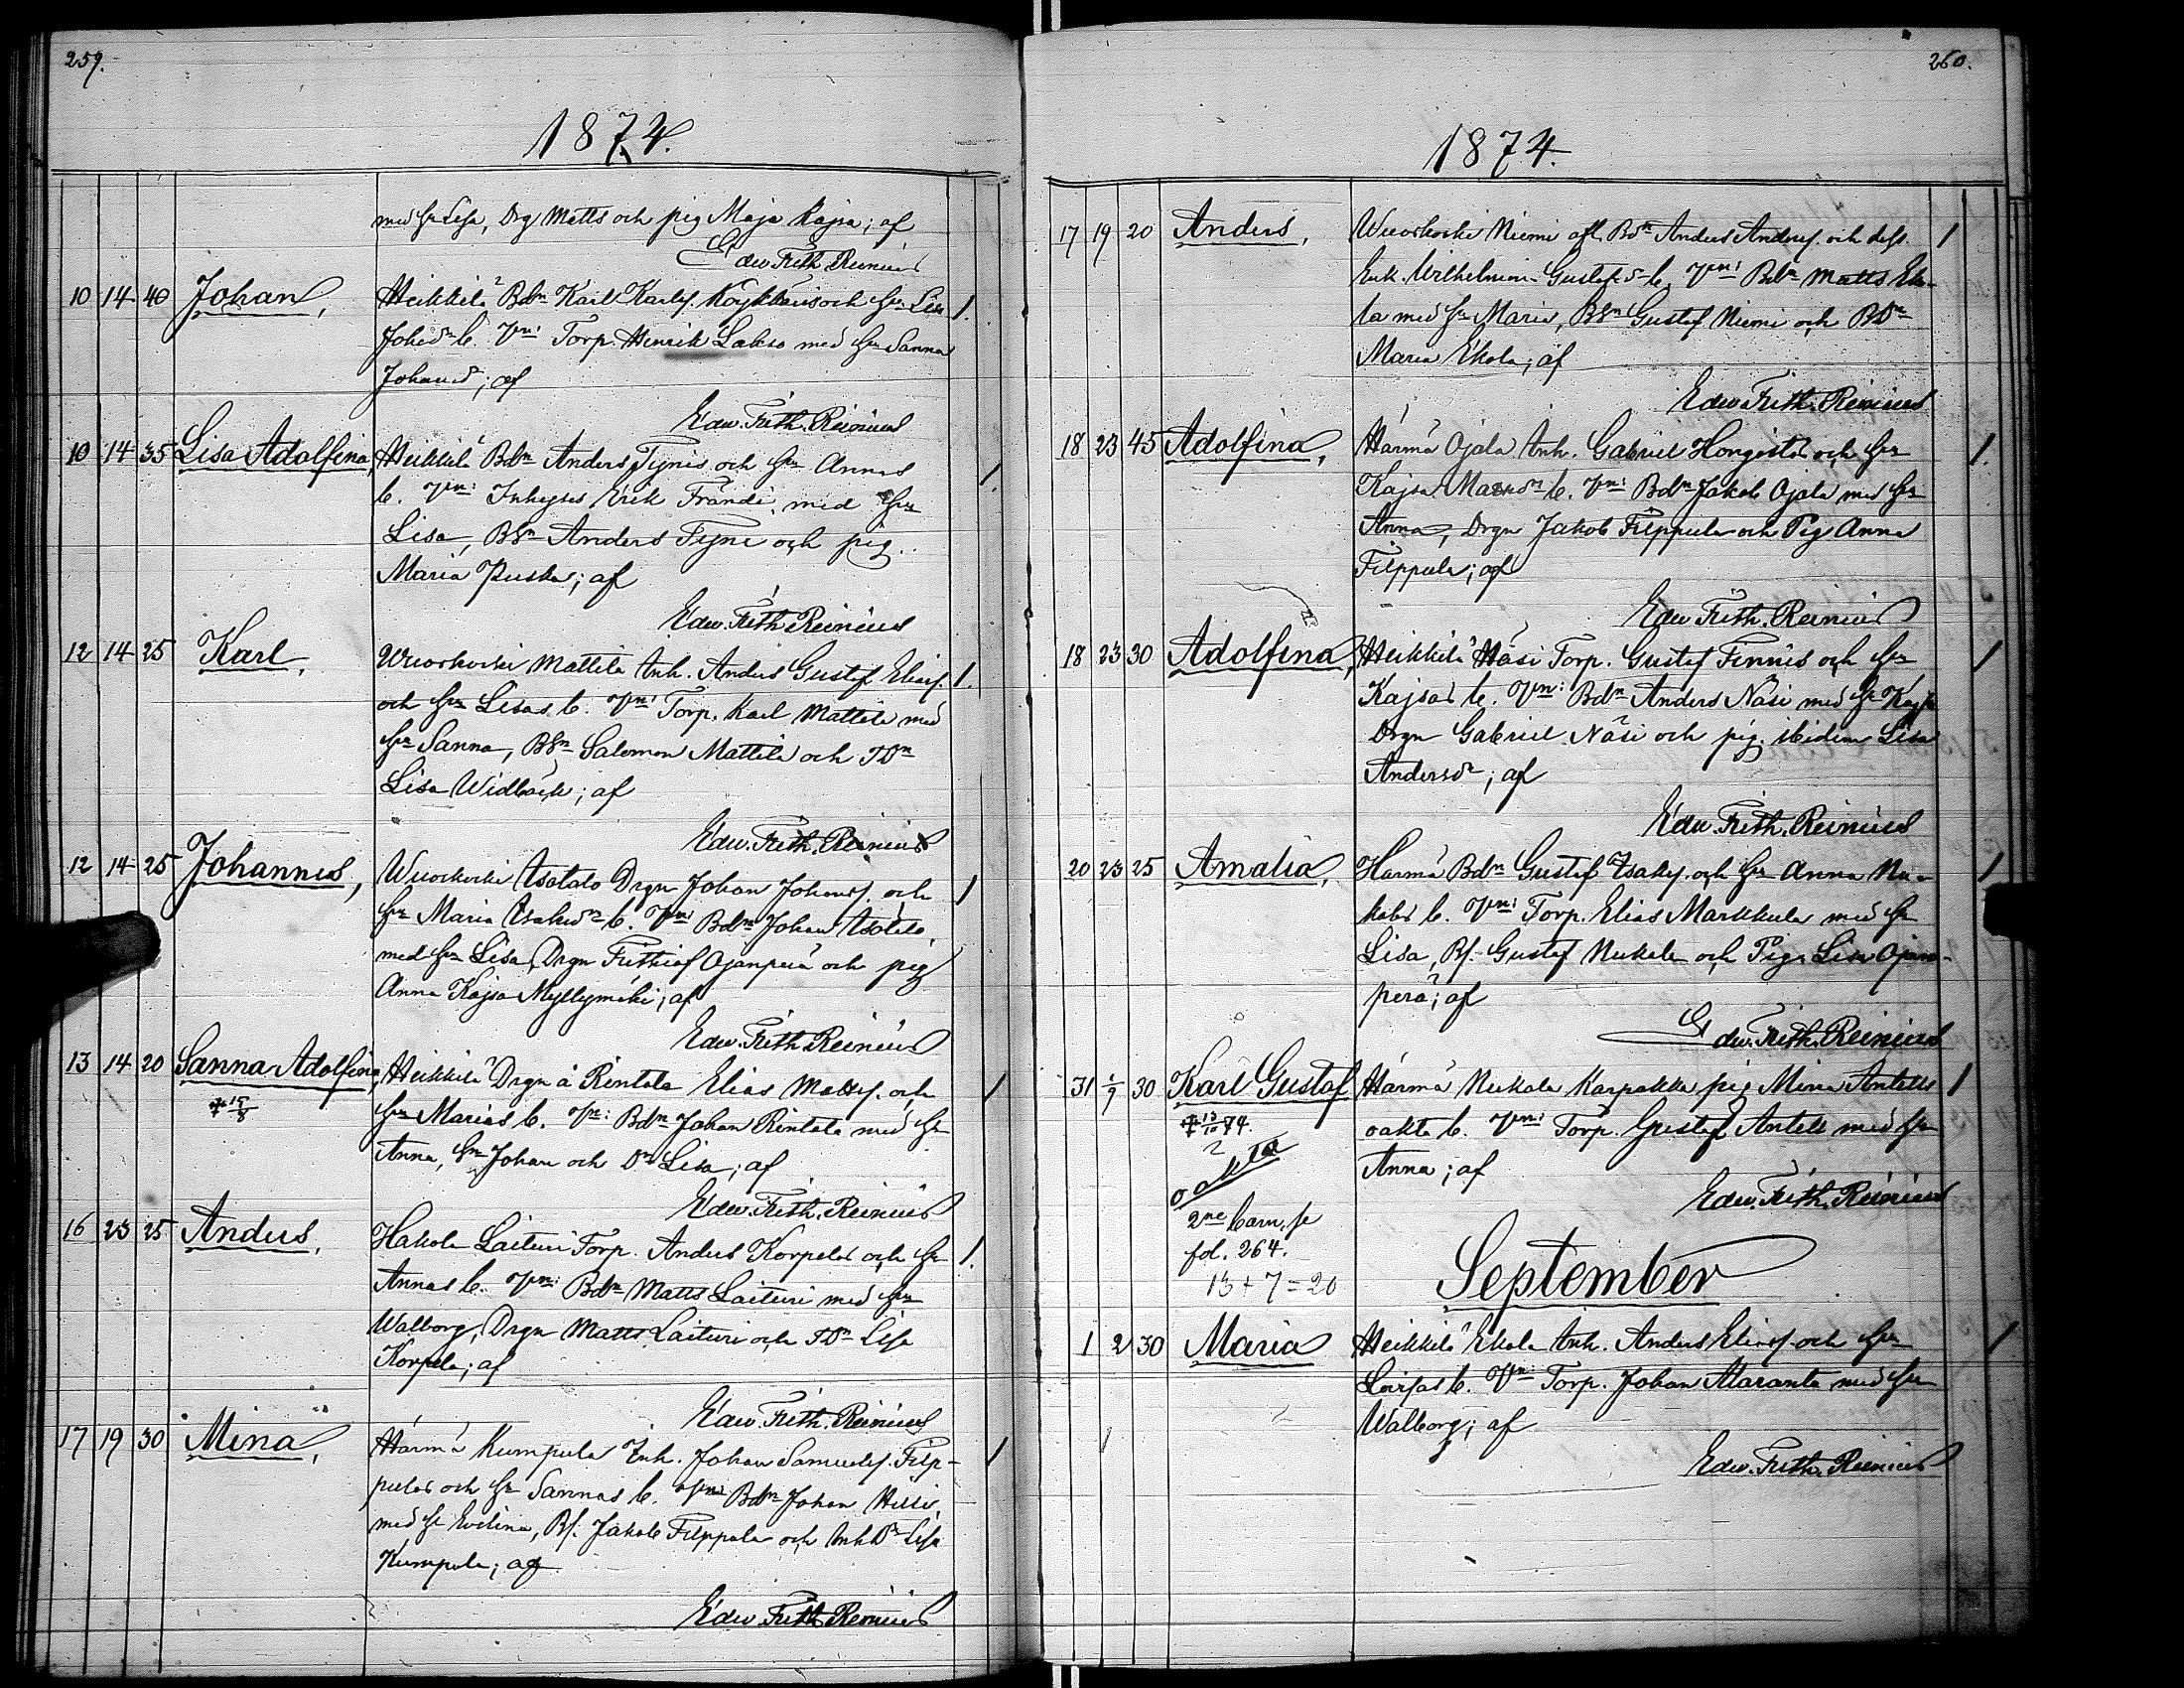 259.
1874.
med hu Lisa, Drg Matts och pig Maja Kajsa; af
Edw. Frith. Reinius
10 14 40 Johan, Heikkilä Bdn Karl Karlss. och hu Lisa 1.
b. Vn: Torp. Henrik Lakso med hu Sanna
; af
Edw. Frith. Reinius
10 14 35 Lisa Adolfina, Heikkilä Bdn Anders Tynis och hu Annas 1.
b. Vn: Inhyses Erik Frändi med hu
Lisa, BSn Anders Tyni och pig.
Maria Puska; af
Edw. Frith. Reinius
12 14 25 Karl, Mattila Inh. Anders Gustaf Eliass. 1.
och hu Lisas b. Vn: Torp. Karl Mattila med
hu Sanna, BSn Salomon Mattila och TDn
Lisa Widbäck; af
Edw. Frith. Reinius
12 14 25 Johannes, Isotalo Drgn Johan Johanss. och 1
hu Maria b. Vn: Bdn Johan Isotalo
med hu Lisa, Drgn Frithiof Ojanperä och pig
Anna Kajsa Myllymäki; af
Edw. Frith. Reinius
13 14 20 Sanna Adolfina, Heikkilä Drgn å Rintala Elias Matss. och 1
‡ 15/8 hu Marias b. Vn: Bdn Johan Rintala med hu
Anna, Sn Johan och Dn Lisa; af
Edw. Frith. Reinius
16 23 25 Anders, Hakola Laituri Torp. Anders Korpelas och hu 1.
Annas b. Vn: Bdn Matts Laituri med hu
Walborg, Drgn Matts Laituri och TDn Lisa
Korpela; af
Edw. Frith. Reinius
17 19 30 Mina, Härmä Kumpula Inh. Johan Samuelss. Filp- 1
pulas och hu Sannas b. Vn: Bdn Johan
med hu Evelina, Bs. Jakob Filppula och Inh Dr Lisa
Kumpula; af
Edw. Frith. Reinius
260.
1874.
17 19 20 Anders, Niemi afl. Bdn Anders Anderss. och dess 1
Enk. Wilhelmina b. Vn: Bdn Matts Eko-
la med hu Maria, BSn Gustaf Niemi och BDn
Maria Ekola; af
Edw. Frith. Reinius
18 23 45 Adolfina, Härmä Ojala Inh. Gabriel Hongistos och hu 1.
Kajsa b. Vn: Bdn Jakob Ojala med hu
Anna, Drgn Jakob Filppula och Pig Anna
Filppula; af
Edw. Frith. Reinius
18 23 30 Adolfina, Heikkilä Näsi Torp. Gustaf Finnis och hu 1
Kajsas b. Vn: Bdn Anders Näsi med hu Kajsa
Drgn Gabriel Näsi och pig. ibidem Lisa
Andersdr; af
Edw. Frith. Reinius
20 23 25 Amalia, Härmä Bdn Gustaf Isakss. och hu Anna 1
b. Vn: Torp. Elias Markkula med hu
Lisa, Bs. Gustaf och Pign Lisa Ojan-
perä; af
Edw. Frith. Reinius
31 1/9 30 Karl Gustaf Härmä Karpakka pig Mina Antells 1
‡ 13/10 74. oäkta b. Vn: Torp. Gustaf Antell med hu
oäkta Anna; af
Edw. Frith. Reinius
2ne barn, se
fol. 264.
13 + 7 = 20
September
1 2 30 Maria Heikkilä Ekola Inh. Anders Eliass. och hu 1
b. Vn: Torp. Johan Maranta med hu
Walborg; af
Edw. Frith. Reinius